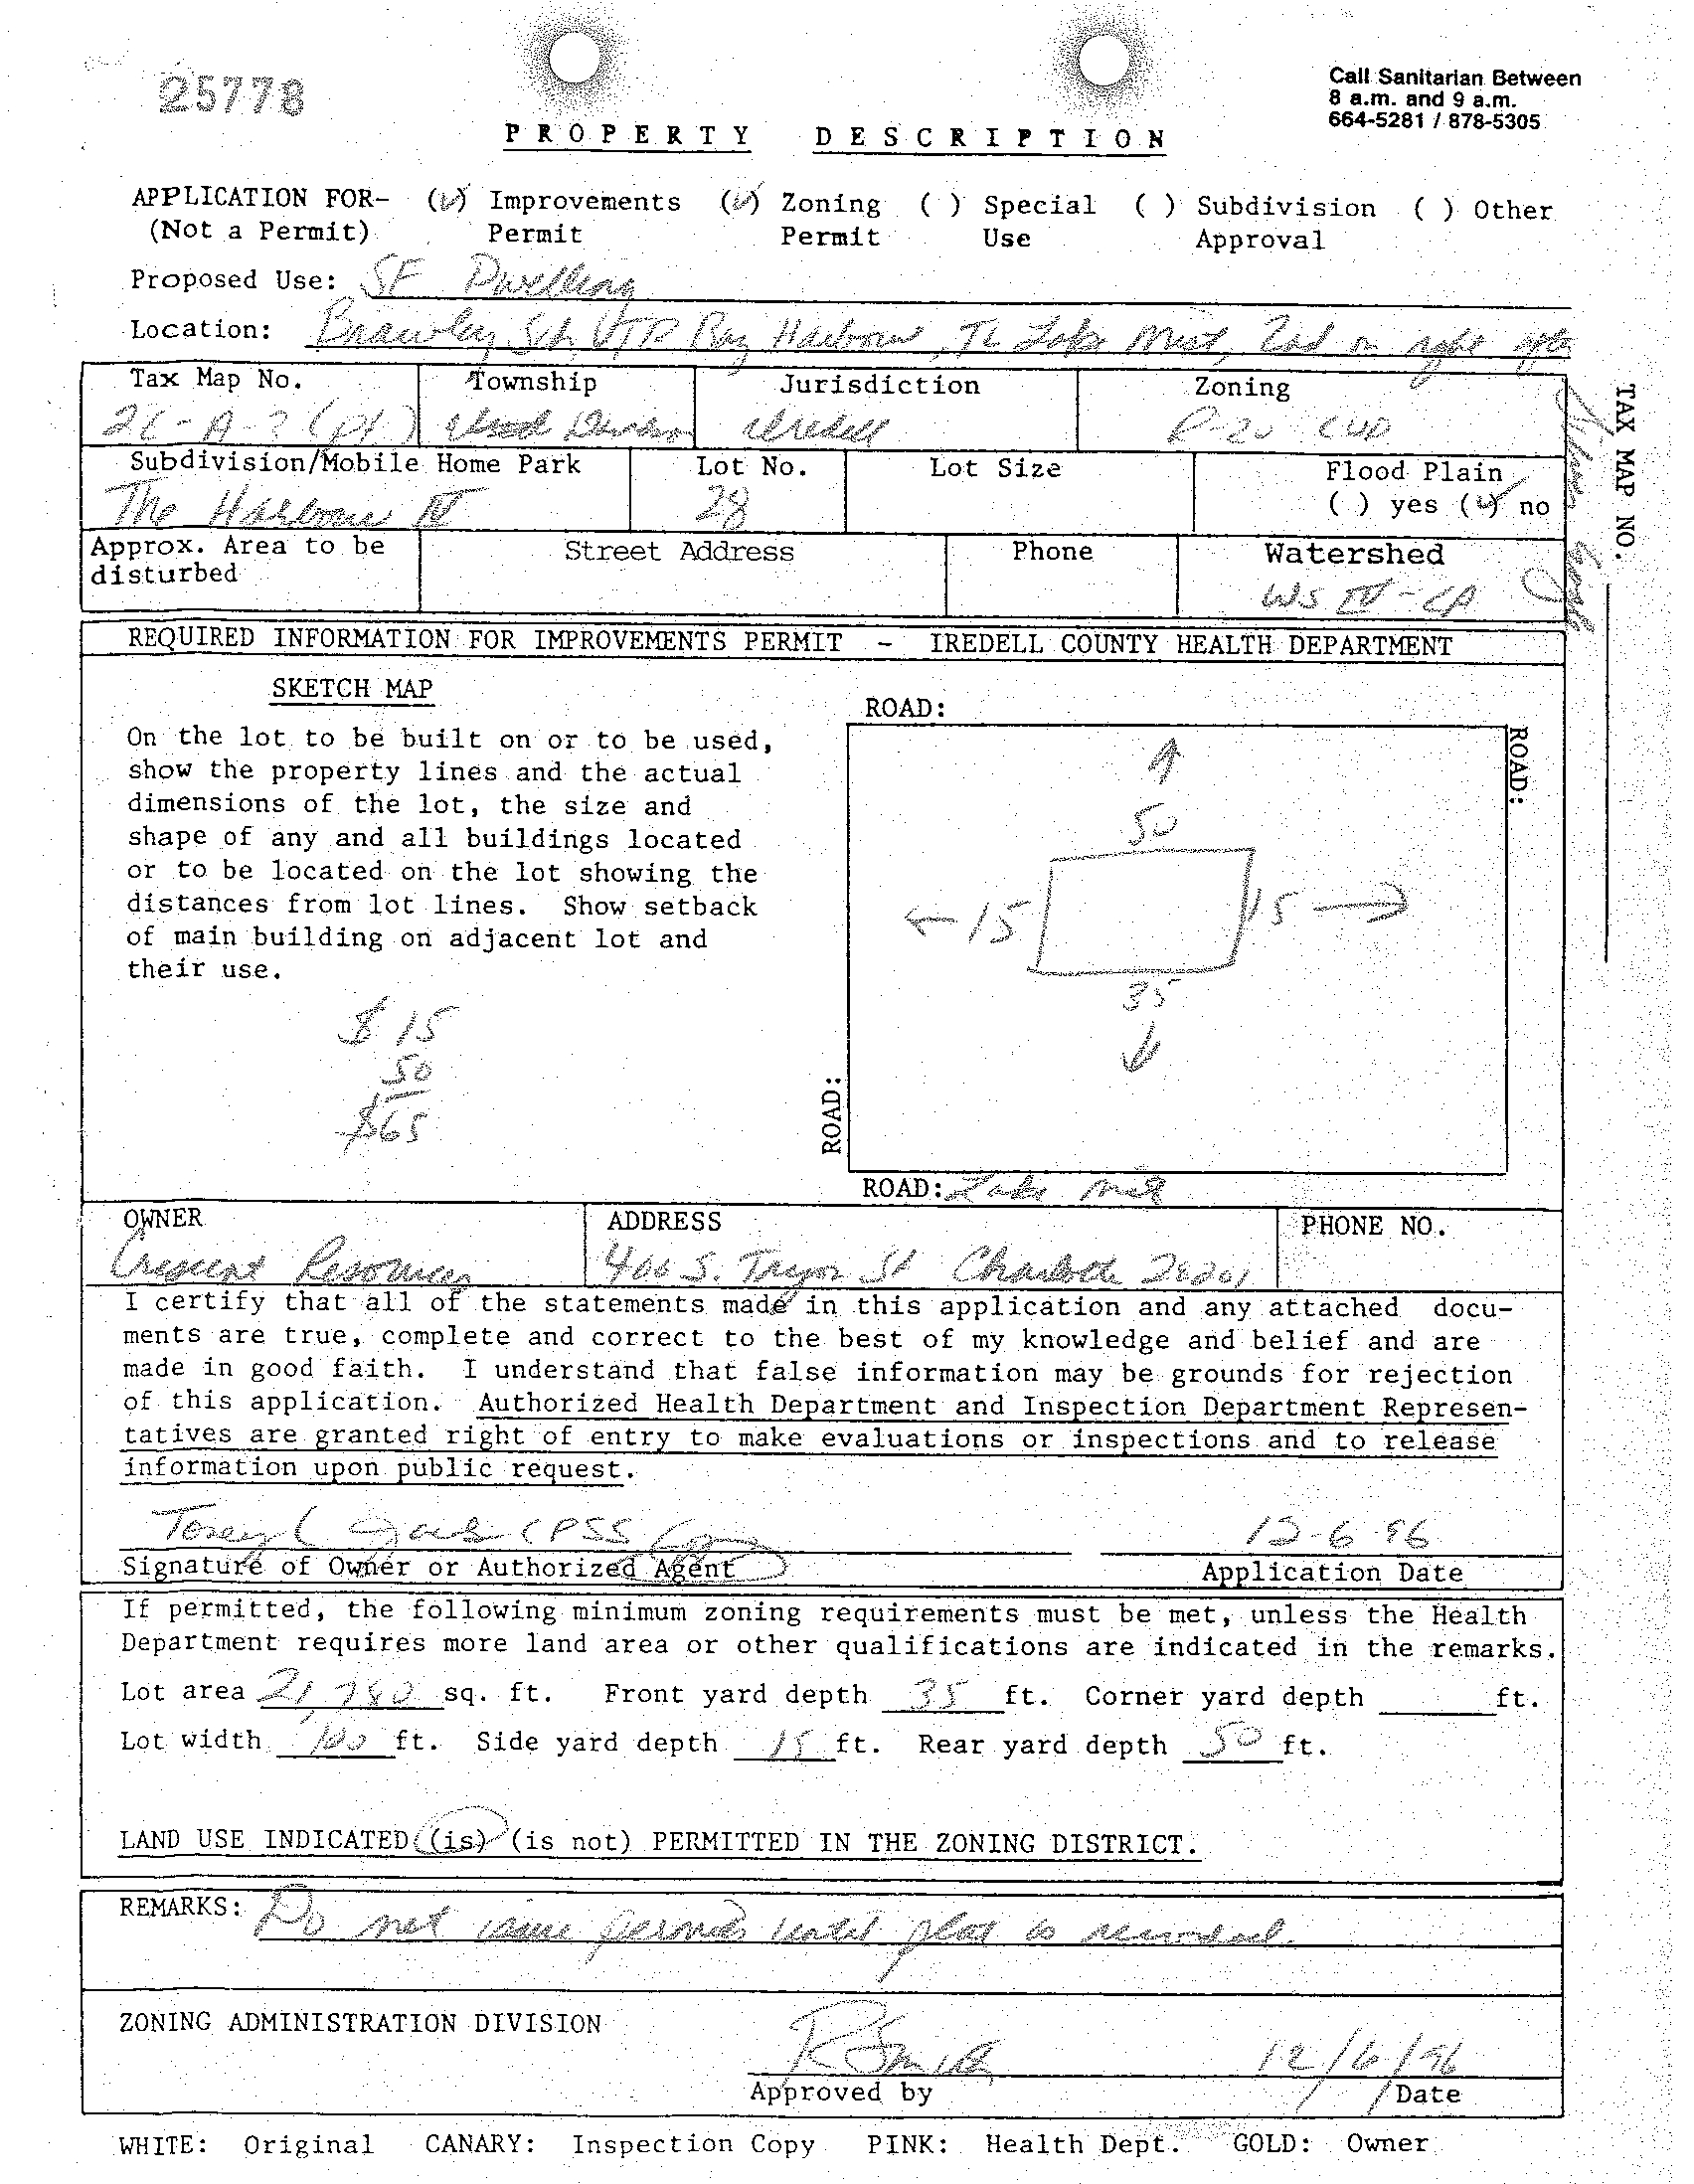 25778
Call Sanitarian Between
8 a.m. and 9 a.m.
664-5281 / 878-5305
PROPERTY DESCRIPTION
APPLICATION FOR- (✓) Improvements (✓) Zoning ( ) Special ( ) Subdivision ( ) Other
(Not a Permit) Permit Permit Use Approval
Proposed Use: SF Dwelling
Location: Brawley Sch, Harbour, TL Lake Mist, 2nd on right after
Tax Map No. Township Jurisdiction Zoning
(Pt) Iredell R-20 CUD
Subdivision/Mobile Home Park Lot No. Lot Size Flood Plain
The Harbour IV 28 ( ) yes (✓) no
Approx. Area to be Street Address Phone Watershed
disturbed
WS IV - CA
TAX MAP NO.
REQUIRED INFORMATION FOR IMPROVEMENTS PERMIT - IREDELL COUNTY HEALTH DEPARTMENT
SKETCH MAP
On the lot to be built on or to be used,
show the property lines and the actual
dimensions of the lot, the size and
shape of any and all buildings located
or to be located on the lot showing the
distances from lot lines. Show setback
of main building on adjacent lot and
their use.
$ 15
50
$65
ROAD:
ROAD:
50
← 15
15 →
35
ROAD:
ROAD: Lake Mist
OWNER ADDRESS PHONE NO.
Crescent Resources 400 S. Tryon St Charlotte 28201
I certify that all of the statements made in this application and any attached docu-
ments are true, complete and correct to the best of my knowledge and belief and are
made in good faith. I understand that false information may be grounds for rejection
of this application. Authorized Health Department and Inspection Department Represen-
tatives are granted right of entry to make evaluations or inspections and to release
information upon public request.
12-6-96
Signature of Owner or Authorized Agent Application Date
If permitted, the following minimum zoning requirements must be met, unless the Health
Department requires more land area or other qualifications are indicated in the remarks.
Lot area 21,780 sq. ft. Front yard depth 35 ft. Corner yard depth ft.
Lot width 100 ft. Side yard depth 15 ft. Rear yard depth 50 ft.
LAND USE INDICATED (is) (is not) PERMITTED IN THE ZONING DISTRICT.
REMARKS: Do not issue permits until plat is recorded.
ZONING ADMINISTRATION DIVISION
R Smith 12/6/96
Approved by Date
WHITE: Original CANARY: Inspection Copy PINK: Health Dept. GOLD: Owner